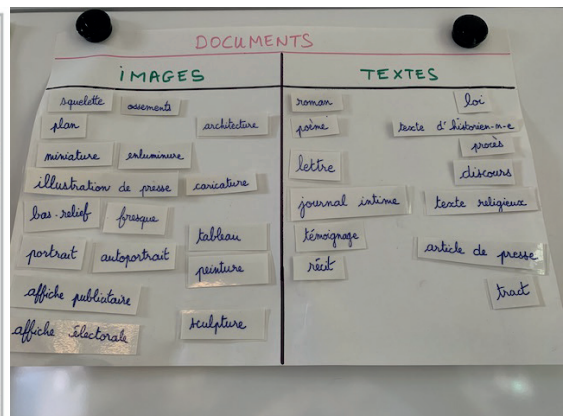 DOCUMENTS
IMAGES
TEXTES
squelette
ossements
plan
architecture
miniature
enluminure
illustration de presse
caricature
bas-relief
fresque
tableau
portrait
autoportrait
peinture
affiche publicitaire
affiche électorale
sculpture
roman
loi
poème
texte d'historien-n-e
procès
lettre
discours
journal intime
texte religieux
témoignage
article de presse
récit
tract